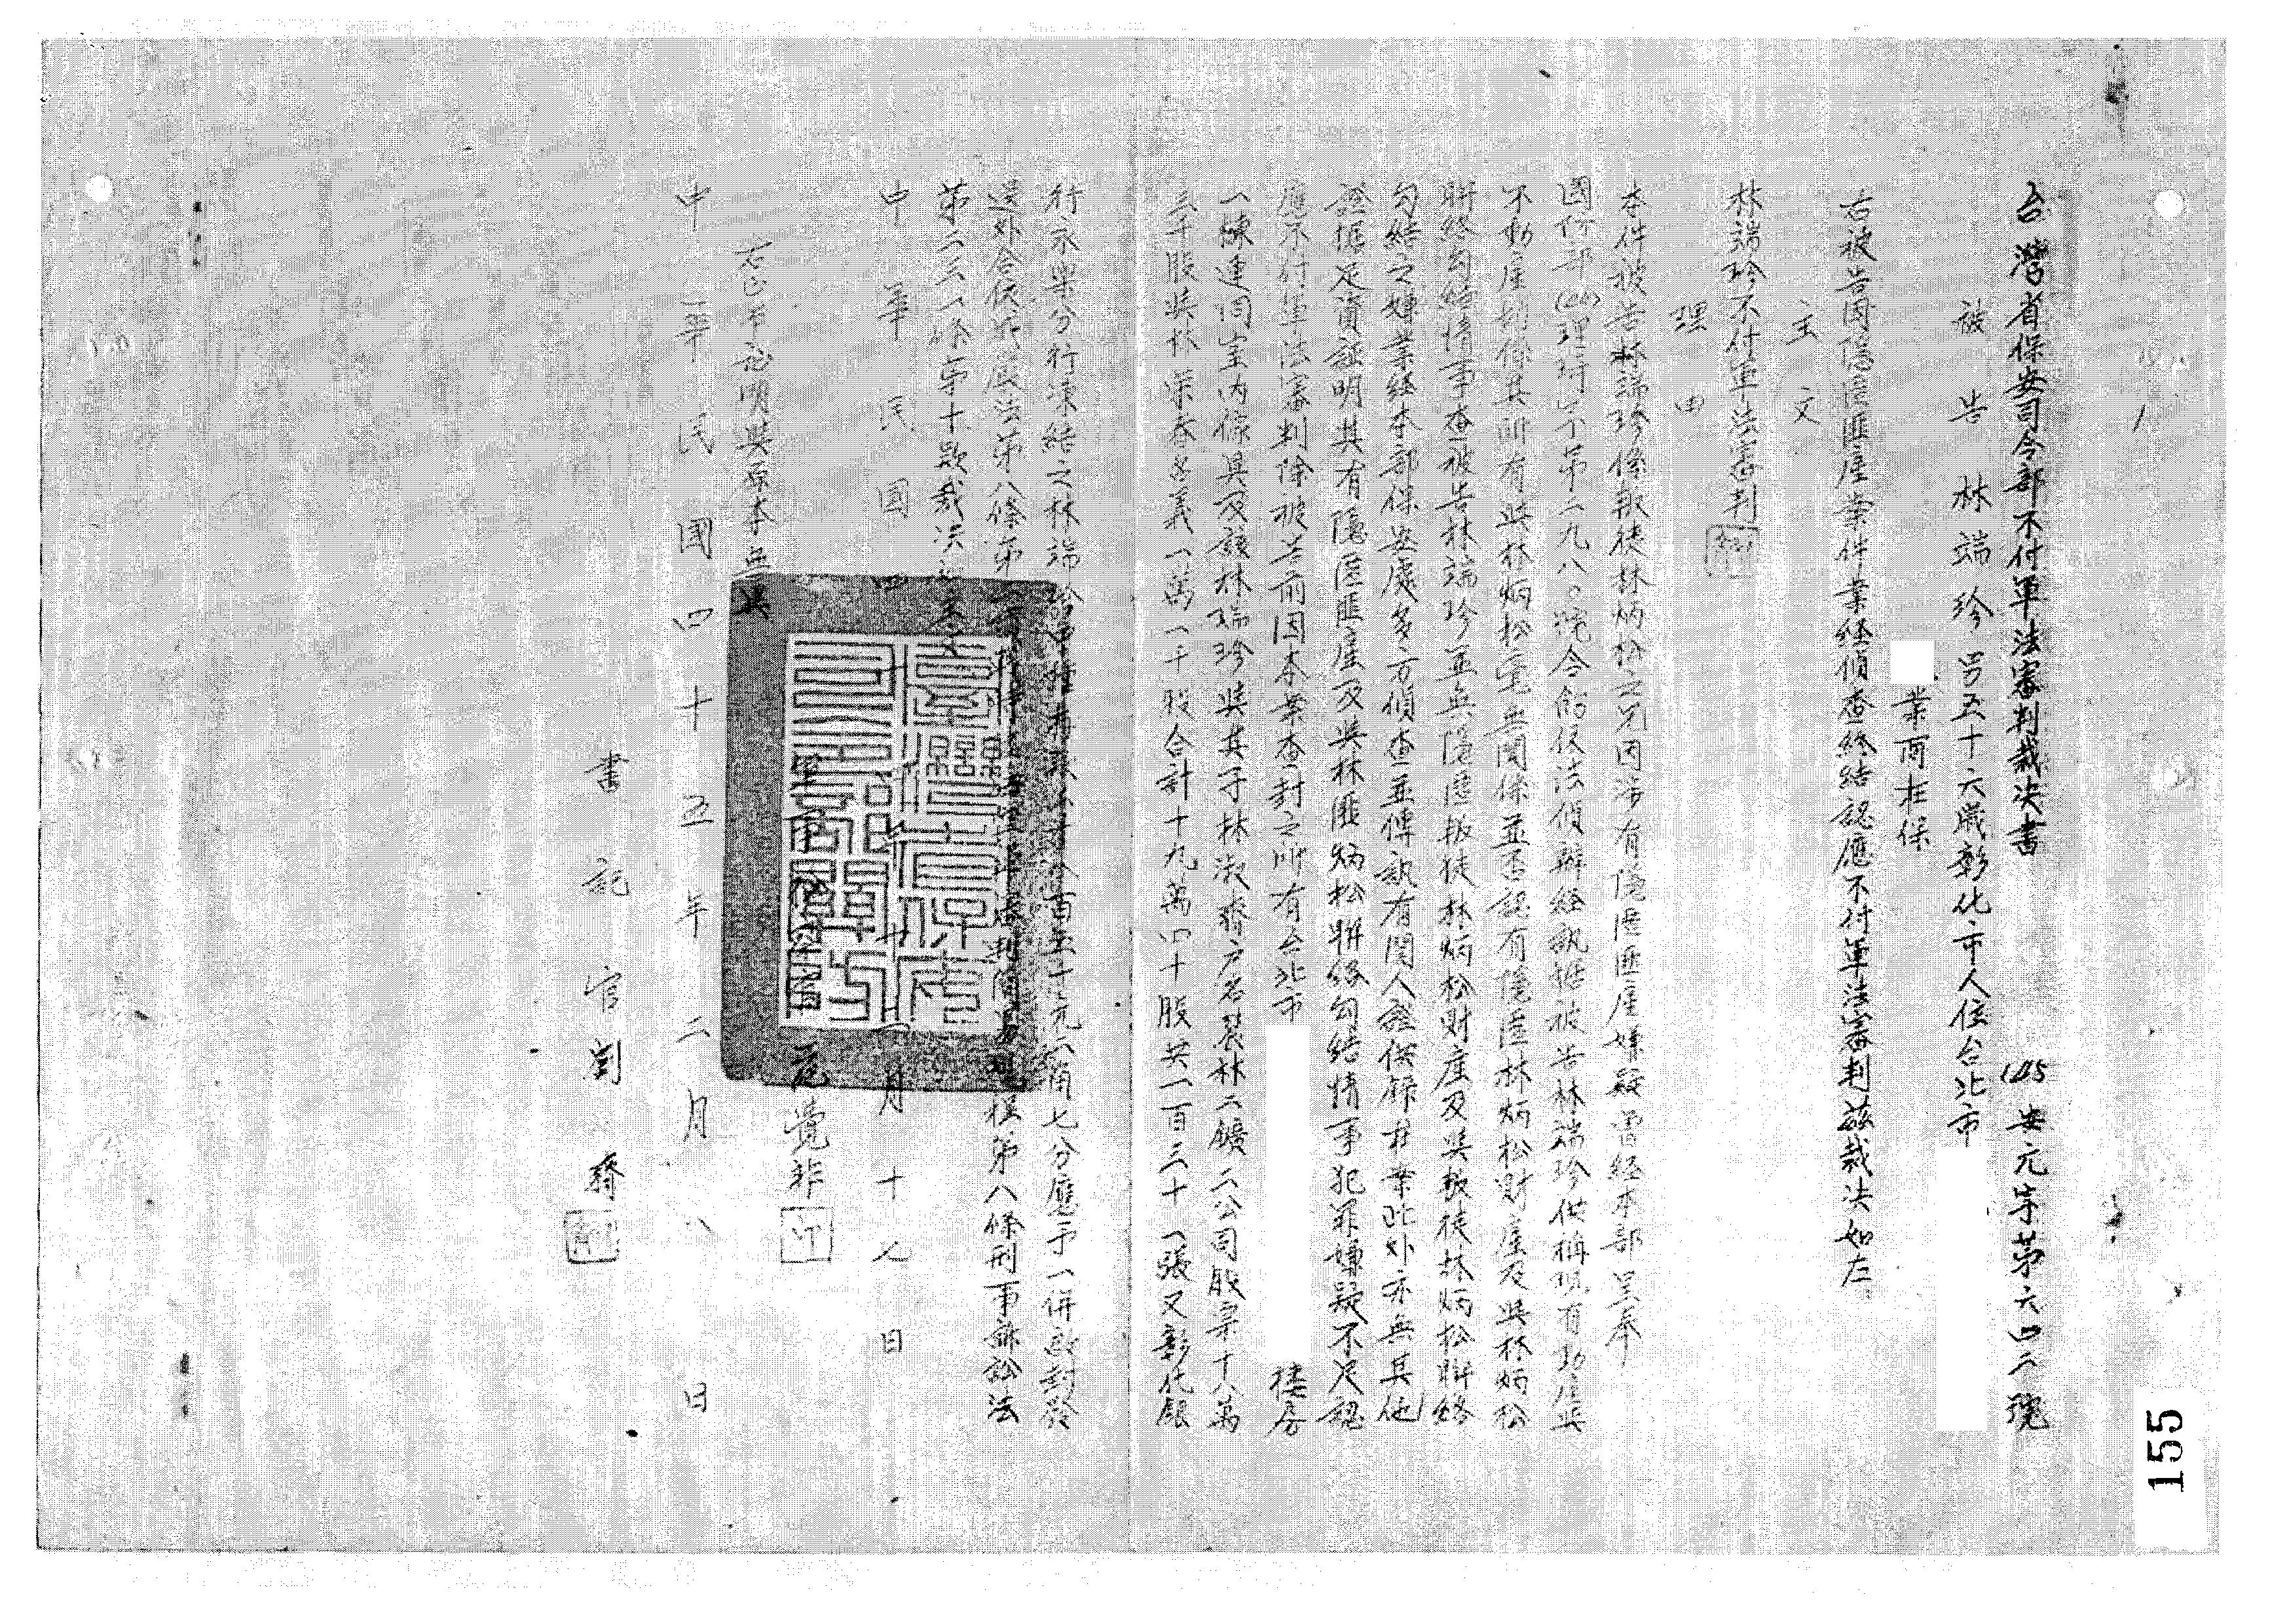 台灣省保安司令部不付軍法審判裁決書 (45)安元字第六四二號
被告 林瑞珍 男五十六歲彰化市人住台北市
業商在保
右被告因隱匿匪產案件業經偵查終結認應不付軍法審判茲裁決如左
主文
林瑞珍不付軍法審判
理由
本件被告林瑞珍係叛徒林炳松之兄因涉有隱匿匪產嫌疑曾經本部呈奉
國防部(45)理珩字第二九八〇號令飭依法偵辦經訊據被告林瑞珍供稱現有動產與
不動產均係其所有與林炳松毫無關係並否認有隱匿林炳松財產及與林炳松
聯絡勾結情事查被告林瑞珍並無隱匿叛徒林炳松財產及與叛徒林炳松聯絡
勾結之嫌業經本部保安處多方偵查並傳訊有關人證供錄在案此外亦無其他
證據足資證明其有隱匿匪產及與林匪炳松聯絡勾結情事犯罪嫌疑不足認
應不付軍法審判除被告前因本案查封之所有台北市 樓房
一棟連同室內傢具及該林瑞珍與其子林淑齊戶名裕林二鑛二公司股票十八萬
三千股與林榮春名義一萬一千股合計十九萬四千股共一百三十一張又彰化銀
行永樂分行凍結之林瑞珍甲種 百五十元六角七分應予一併啟封發
還外合依戒嚴法第八條第 審判簡易規程第八條刑事訴訟法
第二三一條第十款裁決如主文
中華民國四十五年二月十九日
范覺非
右正本證明與原本無異
中華民國四十五年二月 八日
書記官 劉齊
155